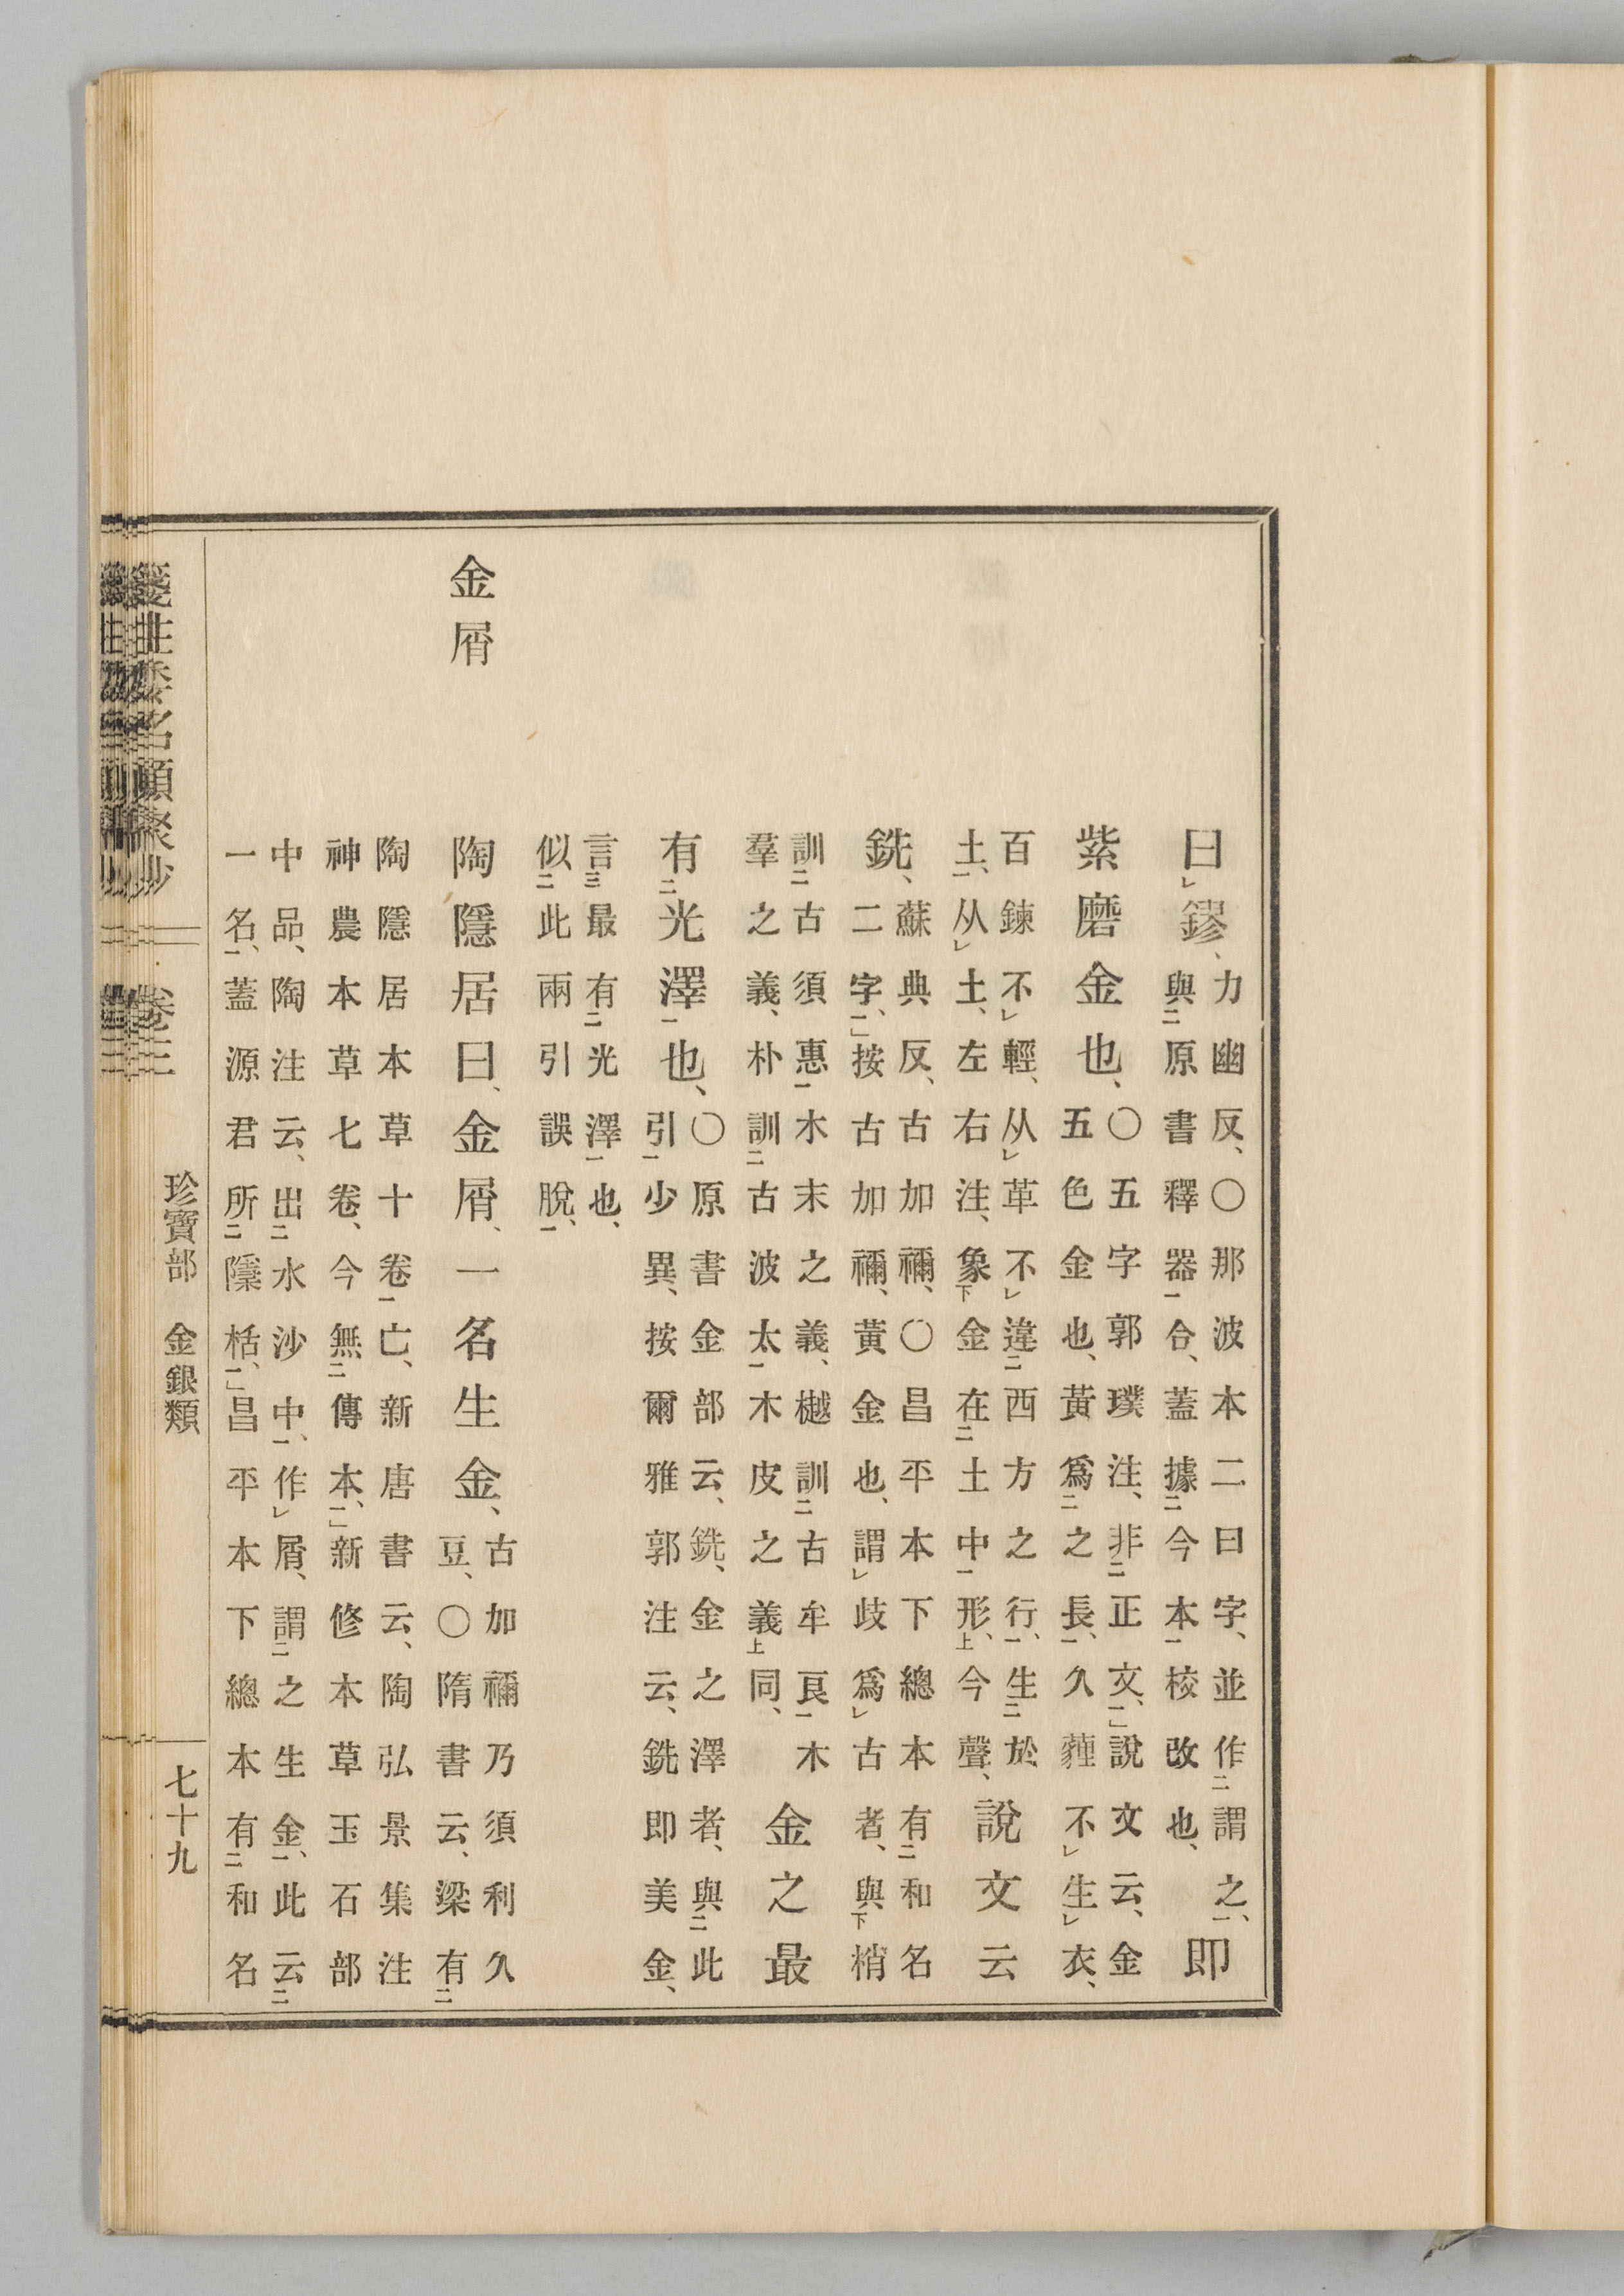 曰鏐、力幽反、〇那波本二曰字、並作謂之、與原書釋器合、蓋據今本校改也、即
紫磨金也、〇五字郭璞注、非正文、說文云、金五色金也、黃爲之長、久薶不生衣、
百鍊不輕、从革不違西方之行、生於土、从土、左右注、象金在土中形、今聲、說文云
銑、蘇典反、古加禰、〇昌平本下總本有和名二字、按古加禰、黃金也、謂歧爲古者、與梢
訓古須惠木末之義、樾訓古牟良木羣之義、朴訓古波太木皮之義同、金之最
有光澤也、〇原書金部云、銑、金之澤者、與此引少異、按爾雅郭注云、銑即美金、
言最有光澤也、似此兩引誤脫、
金屑 陶隱居曰、金屑、一名生金、古加禰乃須利久豆、〇隋書云、梁有
陶隱居本草十卷亡、新唐書云、陶弘景集注神農本草七卷、今無傳本、新修本草玉石部
中品、陶注云、出水沙中、作屑、謂之生金、此云一名、蓋源君所櫽栝、昌平本下總本有和名
箋注倭名類聚抄 卷三 珍寶部 金銀類 七十九